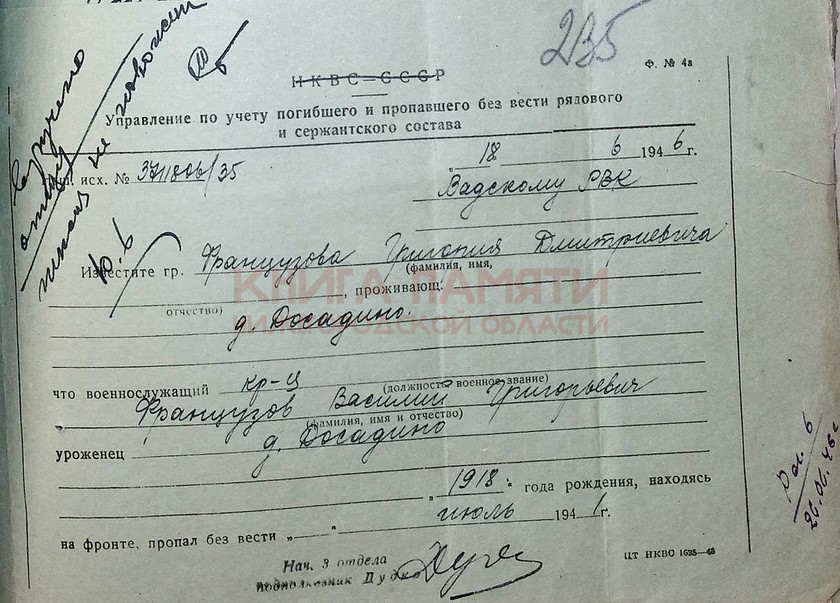 235
Ф. № 4а
НКВС—СССР
Управление по учету погибшего и пропавшего без вести рядового
и сержантского состава
исх. №
„18 „ 6 1946г.
Вадскому РВК
Известите гр. Французова Григория Дмитриевича
(фамилия, имя,
отчество) , проживающ.
д. Досадино.
КНИГА ПАМЯТИ
НИЖЕГОРОДСКОЙ ОБЛАСТИ
что военнослужащий кр-ц
(должность военное звание)
Французов Василий Григорьевич
(фамилия, имя и отчество)
уроженец д. Досадино
„1918 " года рождения, находясь
на фронте, пропал без вести „ " июль 1941г.
Нач. 3 отдела
подполковник Дудко
ЦТ НКВС
Вручено
отцу
не
10.6
26.06.46г